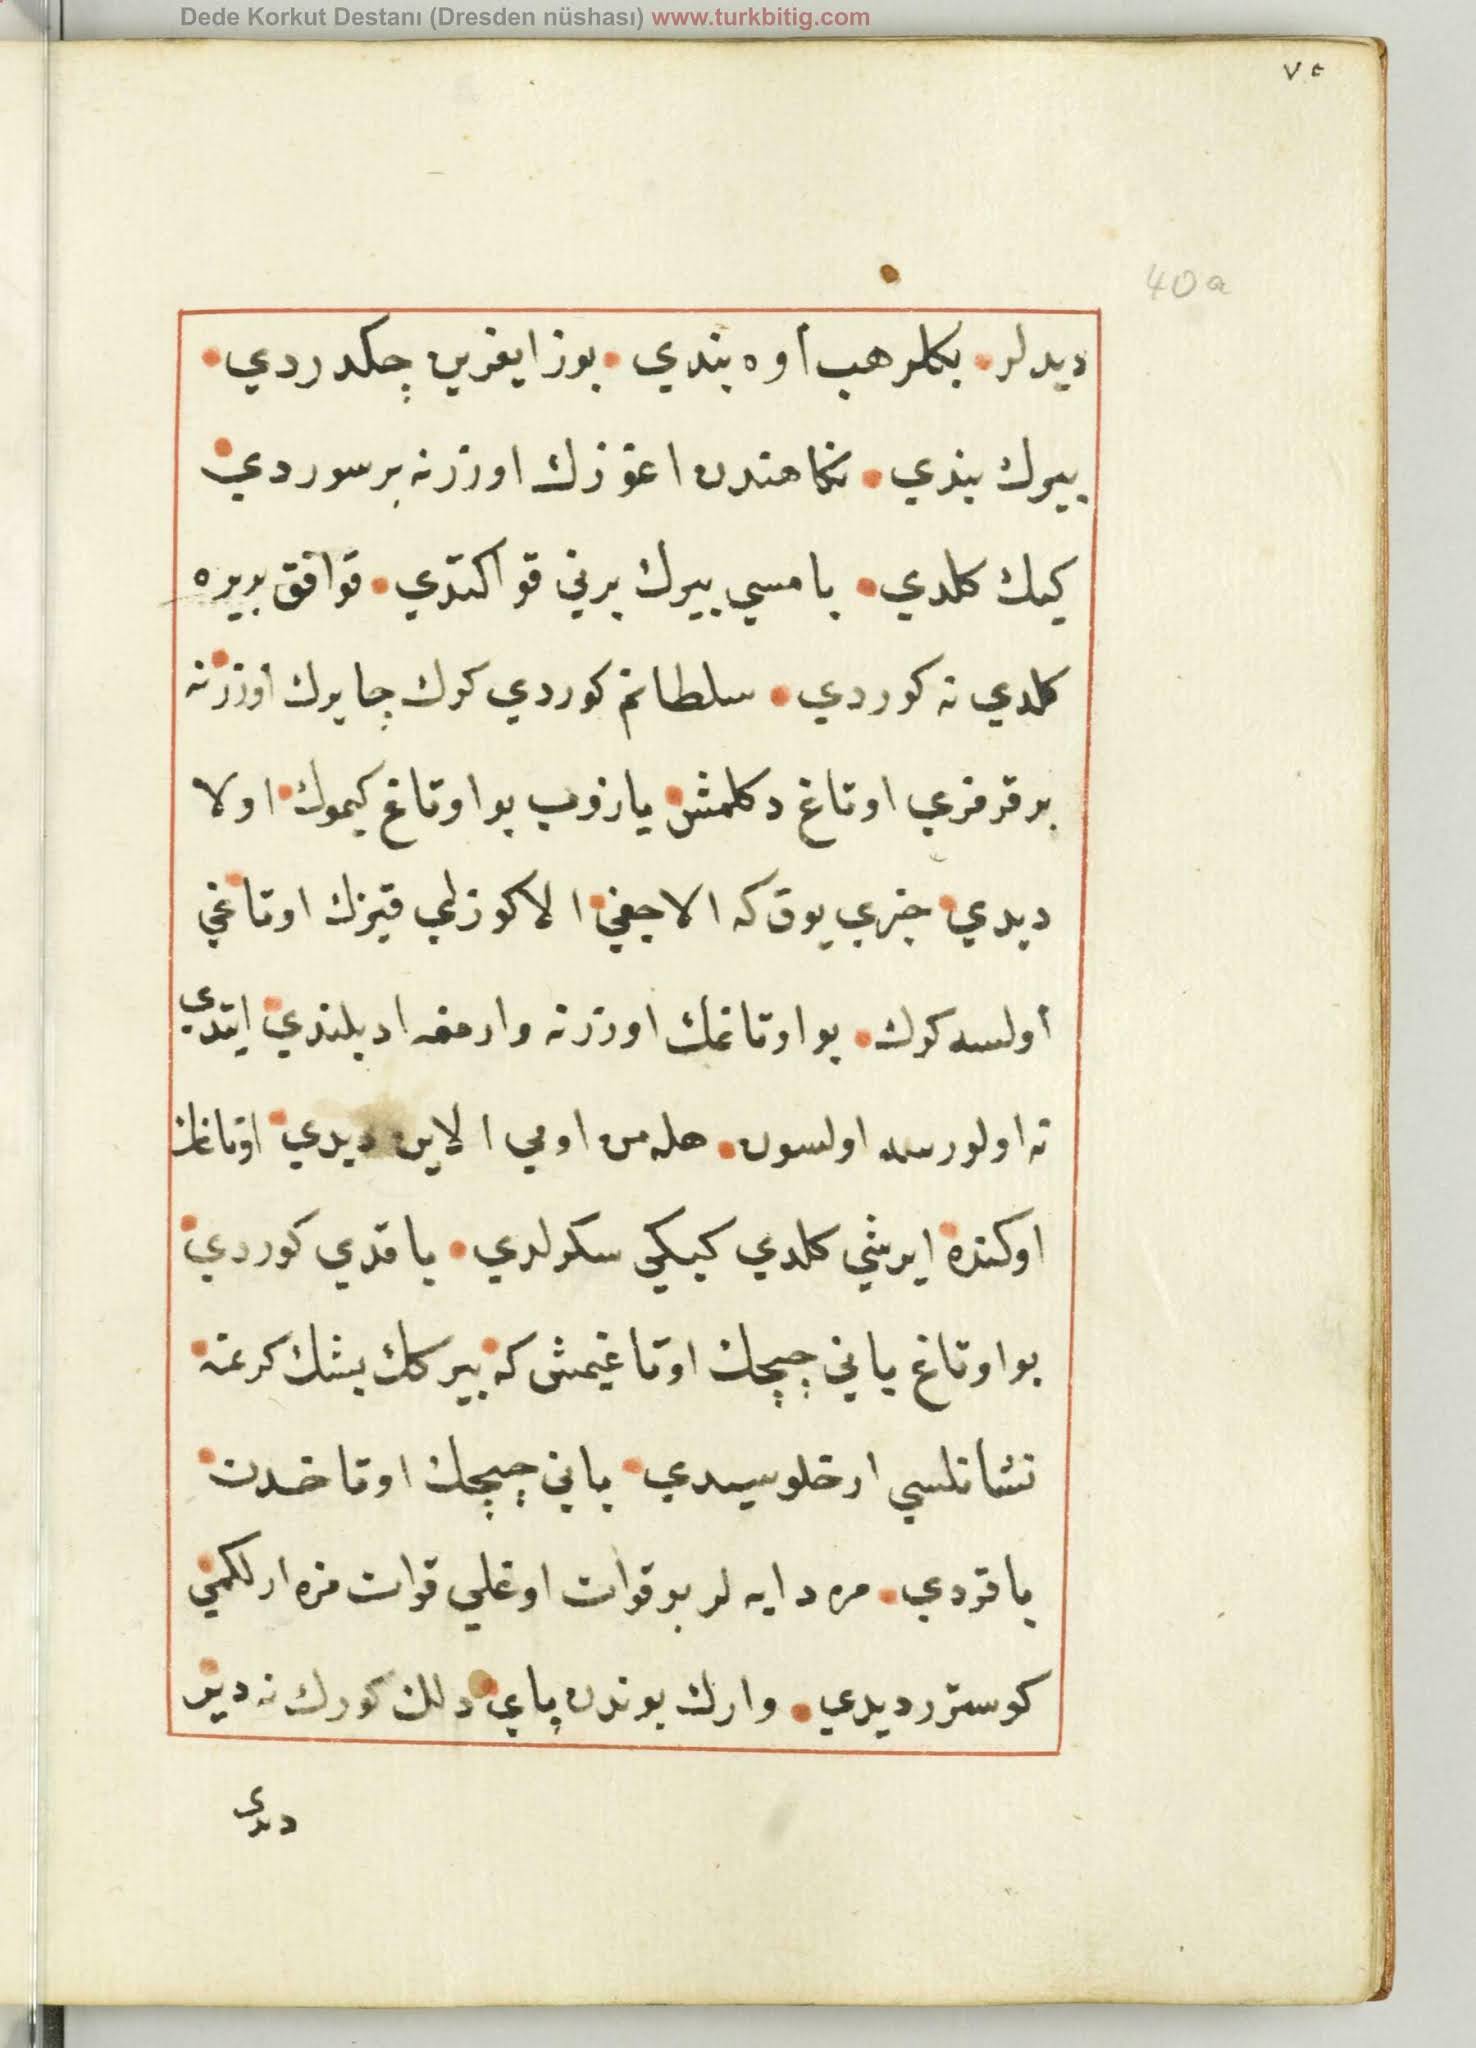 Dede Korkut Destanı (Dresden nüshası) www.turkbitig.com
٧٥
40a
ديدلر بكلر هب أوه بندي بوز ايغرين چكدردي
بيرك بندي نكاهندن اغوزك اوززنه بر سوردي
كيك كلدي بامسي بيرك برني قو اكتدي قوا قوا بر يره
كلدي نه كوردي سلطانم كوردي كوك چايرك اوززنه
بر قرمزي اوتاغ دكلمش يا رب بو اوتاغ كيموك اولا
ديدي خبري يوق كه الاجغي الا كوزلي قيزك اوتاغي
أولسه كرك بو اوتاغك اوززنه وارمغه اديلندي ايتدي
نه اولورسه اولسون هله من اومي الاين ديدي اوتاغك
اوكنده ايرشي كلدي كيكي سكرلدي باقدي كوردي
بو اوتاغ باني چيچك اوتاغيمش كه بيركك بشك كرتمه
نشانلسي ادخلوسيدي باني چيچك اوتاخدن
باقردي مره دايه لر بو قوات اوغلي قوات مزه ارلكمي
كوستررديدي وارك بوندن پاي دلك كورك نه دير
ددي